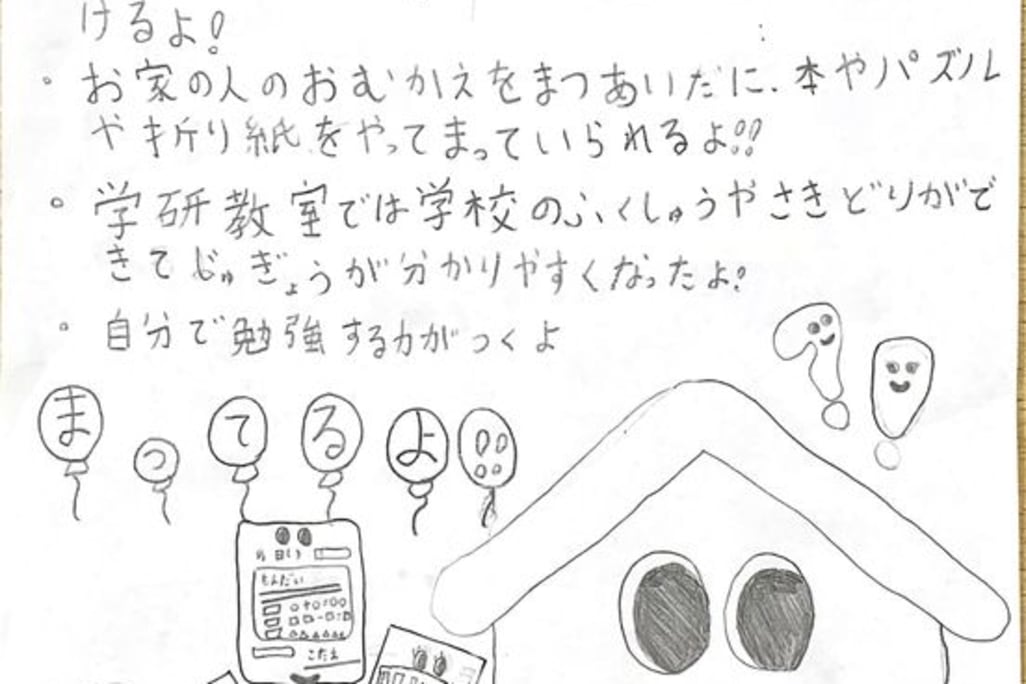 けるよ!
・お家の人のおむかえをまつあいだに、本やパズル
や折り紙をやってまっていられるよ!!
・学研教室では学校のふくしゅうやさきどりがで
きてじゅぎょうが分かりやすくなったよ!
・自分で勉強する力がつくよ
まってるよ!!
もんだい
こたえ